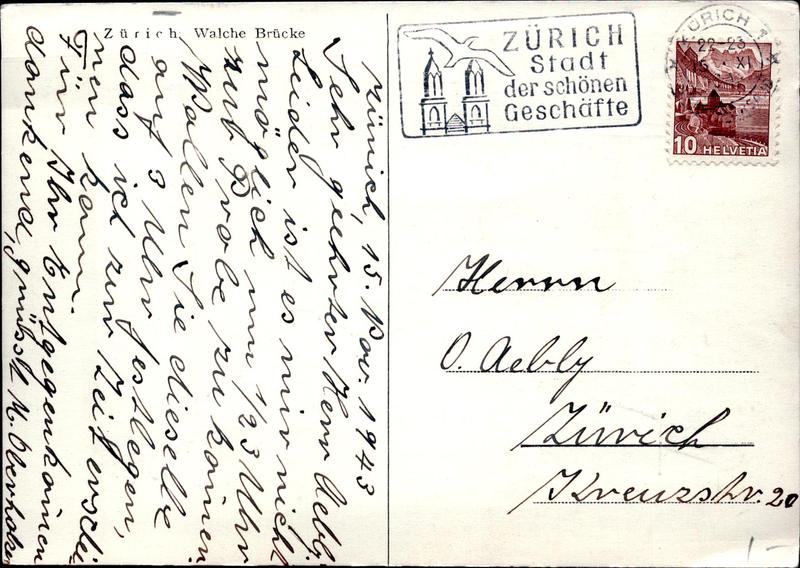 Zürich, Walche Brücke
Zürich, 15. Nov. 1943
Sehr geehrter Herr Aebly
Leider ist es mir nicht
möglich um 1/2 3 Uhr
zur Probe zu kommen.
Wollen Sie dieselbe
auf 3 Uhr festlegen,
dass ich zur Zeit erschei
nen kann.
Für Ihr Entgegenkommen
dankend, grüsst M. Oberholzer
ZÜRICH
Stadt
der schönen
Geschäfte
ZÜRICH 1
22-23
XI
10 HELVETIA
Herrn
O. Aebly
Zürich
Kreuzstr. 20
1-